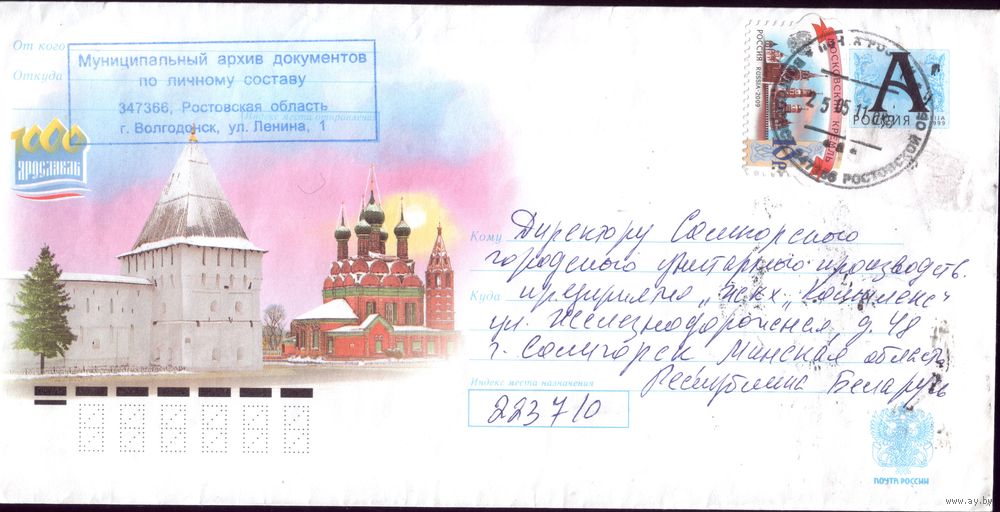 От кого
Откуда
Муниципальный архив документов
по личному составу
347366, Ростовская область
г. Волгодонск, ул. Ленина, 1
Индекс места отправления
1000
ЯРОСЛАВЛЬ
РОССИЯ RUSSIA 2009
МОСКОВСКИЙ КРЕМЛЬ
10 Р.
25 05 11
РОСТОВСКОЙ
А
РОССИЯ
Кому Директору Солигорского
городского унитарного производств.
Куда предприятия „ЖКХ „Комплекс"
ул. Железнодорожная, д. 48
г. Солигорск Минская область
Республика Беларусь
Индекс места назначения
223710
ПОЧТА РОССИИ
www.ay.by